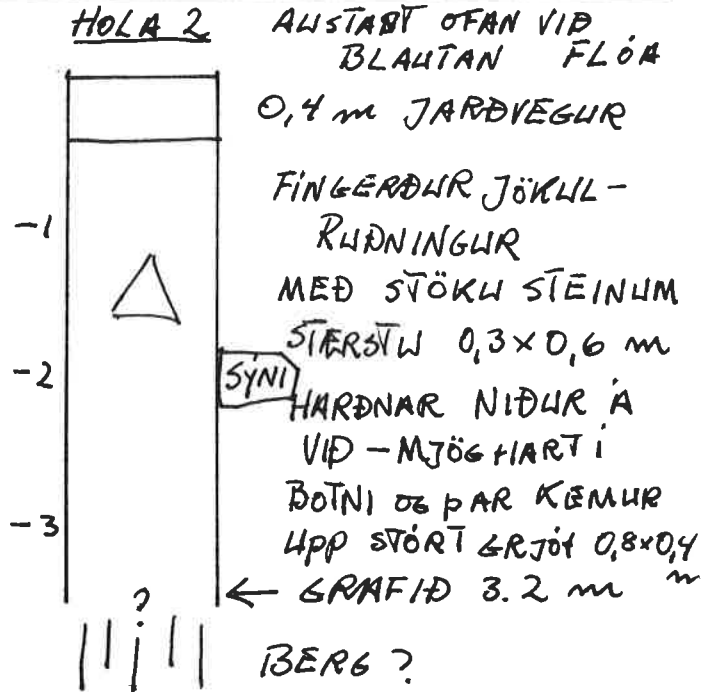 HOLA 2 AUSTAST OFAN VIÐ
BLAUTAN FLÓA
0,4 m JARÐVEGUR
FÍNGERÐUR JÖKUL-
-1
RUÐNINGUR
MEÐ STÖKU STEINUM
STÆRSTU 0,3 x 0,6 m
-2
SÝNI
HARÐNAR NIÐUR Á
VIÐ - MJÖG HART Í
BOTNI OG ÞAR KEMUR
-3
UPP STÓRT GRJÓT 0,8x0,4
m
? ← GRAFIÐ 3.2 m
BERG ?